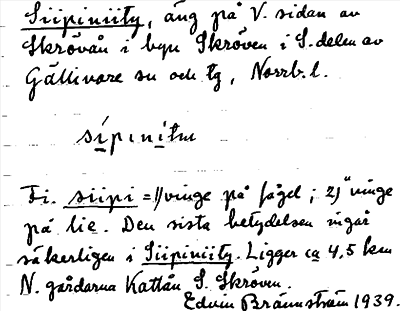 Siipiniity, äng på V. sidan av
Skrövån i byn Skröven i S. delen av
Gällivare sn och tg, Norrb. l.
sípinitᴜ
Fi. siipi = 1) vinge på fågel; 2) "vinge
på lie. Den sista betydelsen ingår
säkerligen i Siipiniity. Ligger ca 4,5 km
N. gårdarna Kattån S. Skröven.
Edvin Brännström 1939.